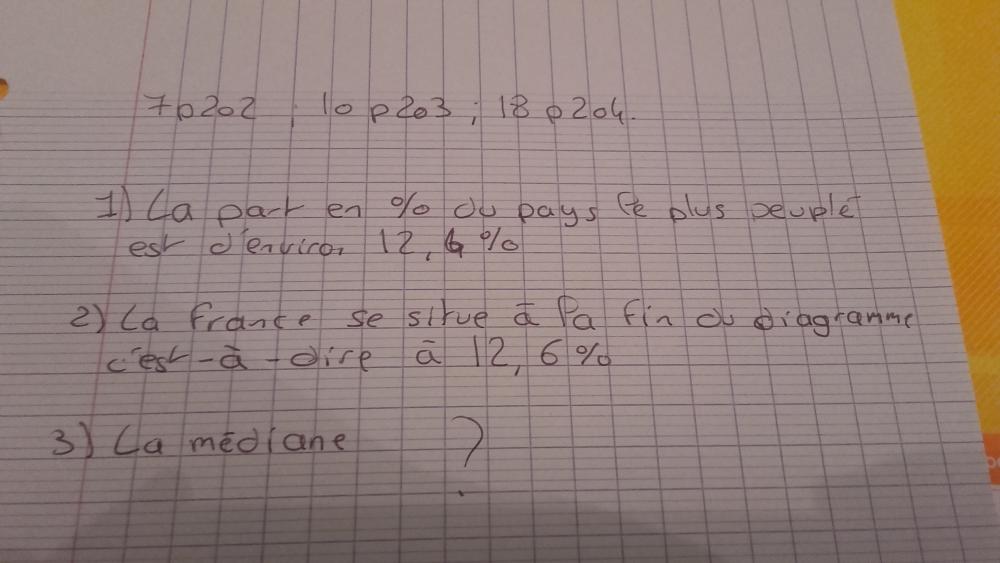 7p202 ; 10 p203 ; 18 p204.
1) La part en % du pays le plus peuplé
est d'environ 12,6 %
2) La France se situe à la fin du diagramme
c'est-à-dire à 12,6 %
3) La médiane ?